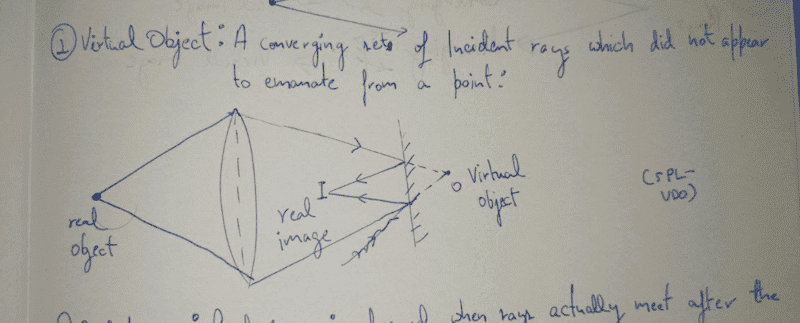 ① Virtual Object: A converging sets of Incident rays which did not appear
to emanate from a point:
real
object
I
real
image
O Virtual
object
(SPL-
VDO)
when rays actually meet after the